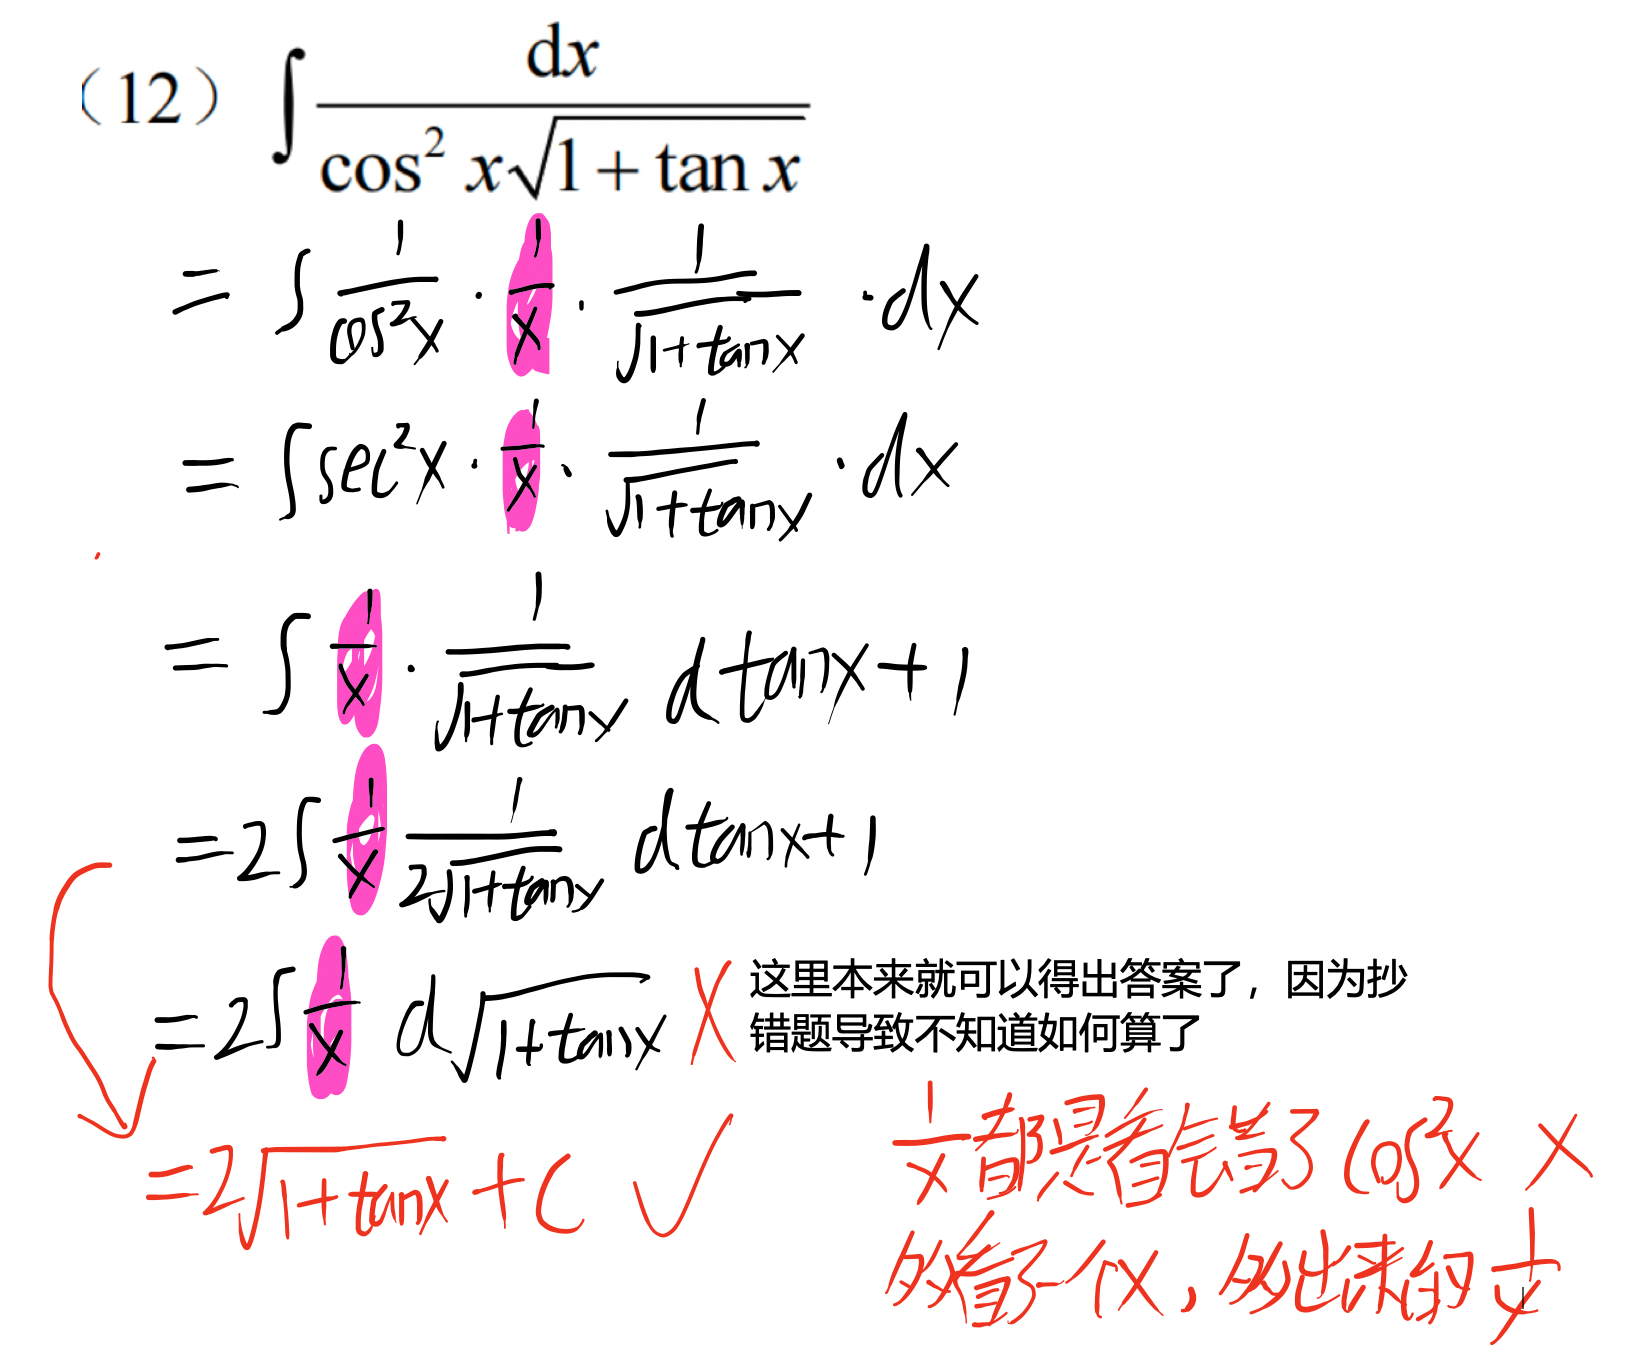 （12）∫ dx / (cos² x√(1 + tan x))
= ∫ 1/cos²x · 1/x · 1/√(1+tanx) · dx
= ∫ sec²x · 1/x · 1/√(1+tanx) · dx
= ∫ 1/x · 1/√(1+tanx) d tanx+1
=2∫ 1/x 1/(2√(1+tanx)) d tanx+1
=2∫ 1/x d√(1+tanx) X
这里本来就可以得出答案了，因为抄
错题导致不知道如何算了
=2√(1+tanx) +C ✓
1/x 都是看错了 cos²x X
多看了一个x，多出来的 1/x